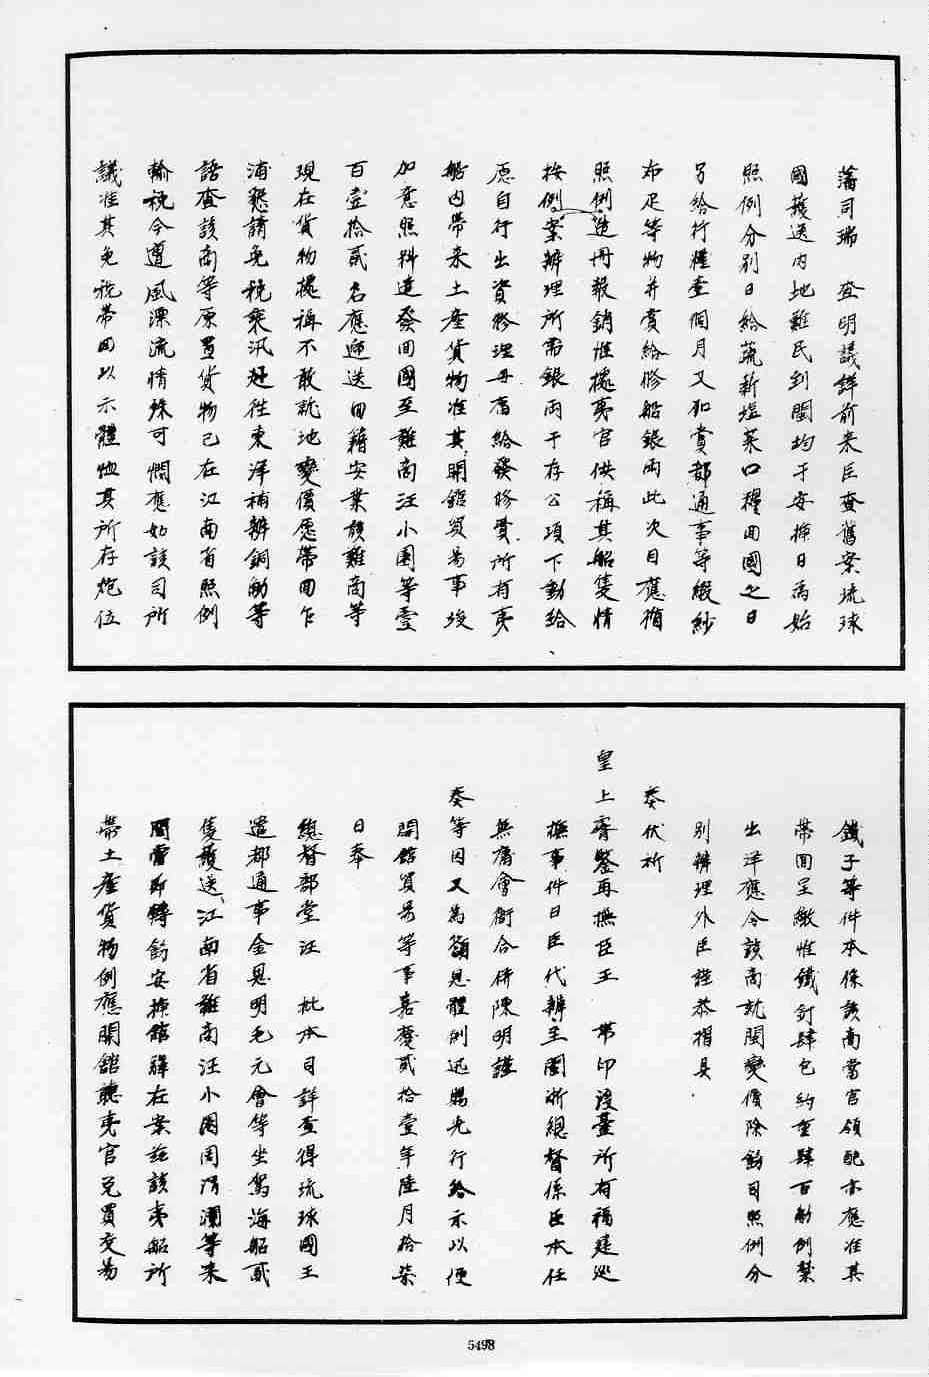 藩司瑞　查明議詳前来臣查舊案琉球
國護送内地難民到閩均于安揷日為始
照例分别日給蔬薪塩菜口糧回國之日
另給行糧壹個月又加賞都通事等緞紗
布疋等物并賞給修船銀兩此次自應循
照例造冊報銷惟據夷官供稱其船隻情
按例案辦理所需銀兩于存公項下動給
愿自行出資修理毋庸給發修費所有夷
船内帶来土産貨物准其開舘貿易事竣
加意照料遣發回國至難商汪小園等壹
百壹拾貳名應遞送回籍安業該難商等
現在貨物據稱不敢就地變價愿帶回乍
浦懇請免稅乗汛赶徃東洋補辦銅觔等
語查該商等原置貨物已在江南省照例
輸稅今遭風漂流情殊可憫應如該司所
議准其免稅帶回以示體恤其所存炮位
鐵子等件本係該商當官領配亦應准其
帶回呈繳惟鐵釘肆包約重肆百觔例禁
出洋應令該商就閩變價除飭司照例分
别辦理外臣謹恭摺具
奏伏祈
皇上睿鑒再撫臣王　帯印渡臺所有福建廵
撫事件日臣代辦至閩浙總督係臣本任
無庸會銜合併陳明謹
奏等因又為籲恩體例迅賜先行給示以便
開舘貿易等事嘉慶貳拾壹年陸月拾柒
日奉
總督部堂汪　批本司詳查得琉球國王
遣都通事金思明毛元會等坐駕海船貳
隻護送江南省難商汪小園周渭瀾等来
閩當即轉飭安揷舘驛在案茲該夷船所
帶土産貨物例應開舘聽夷官兌買交易
5498